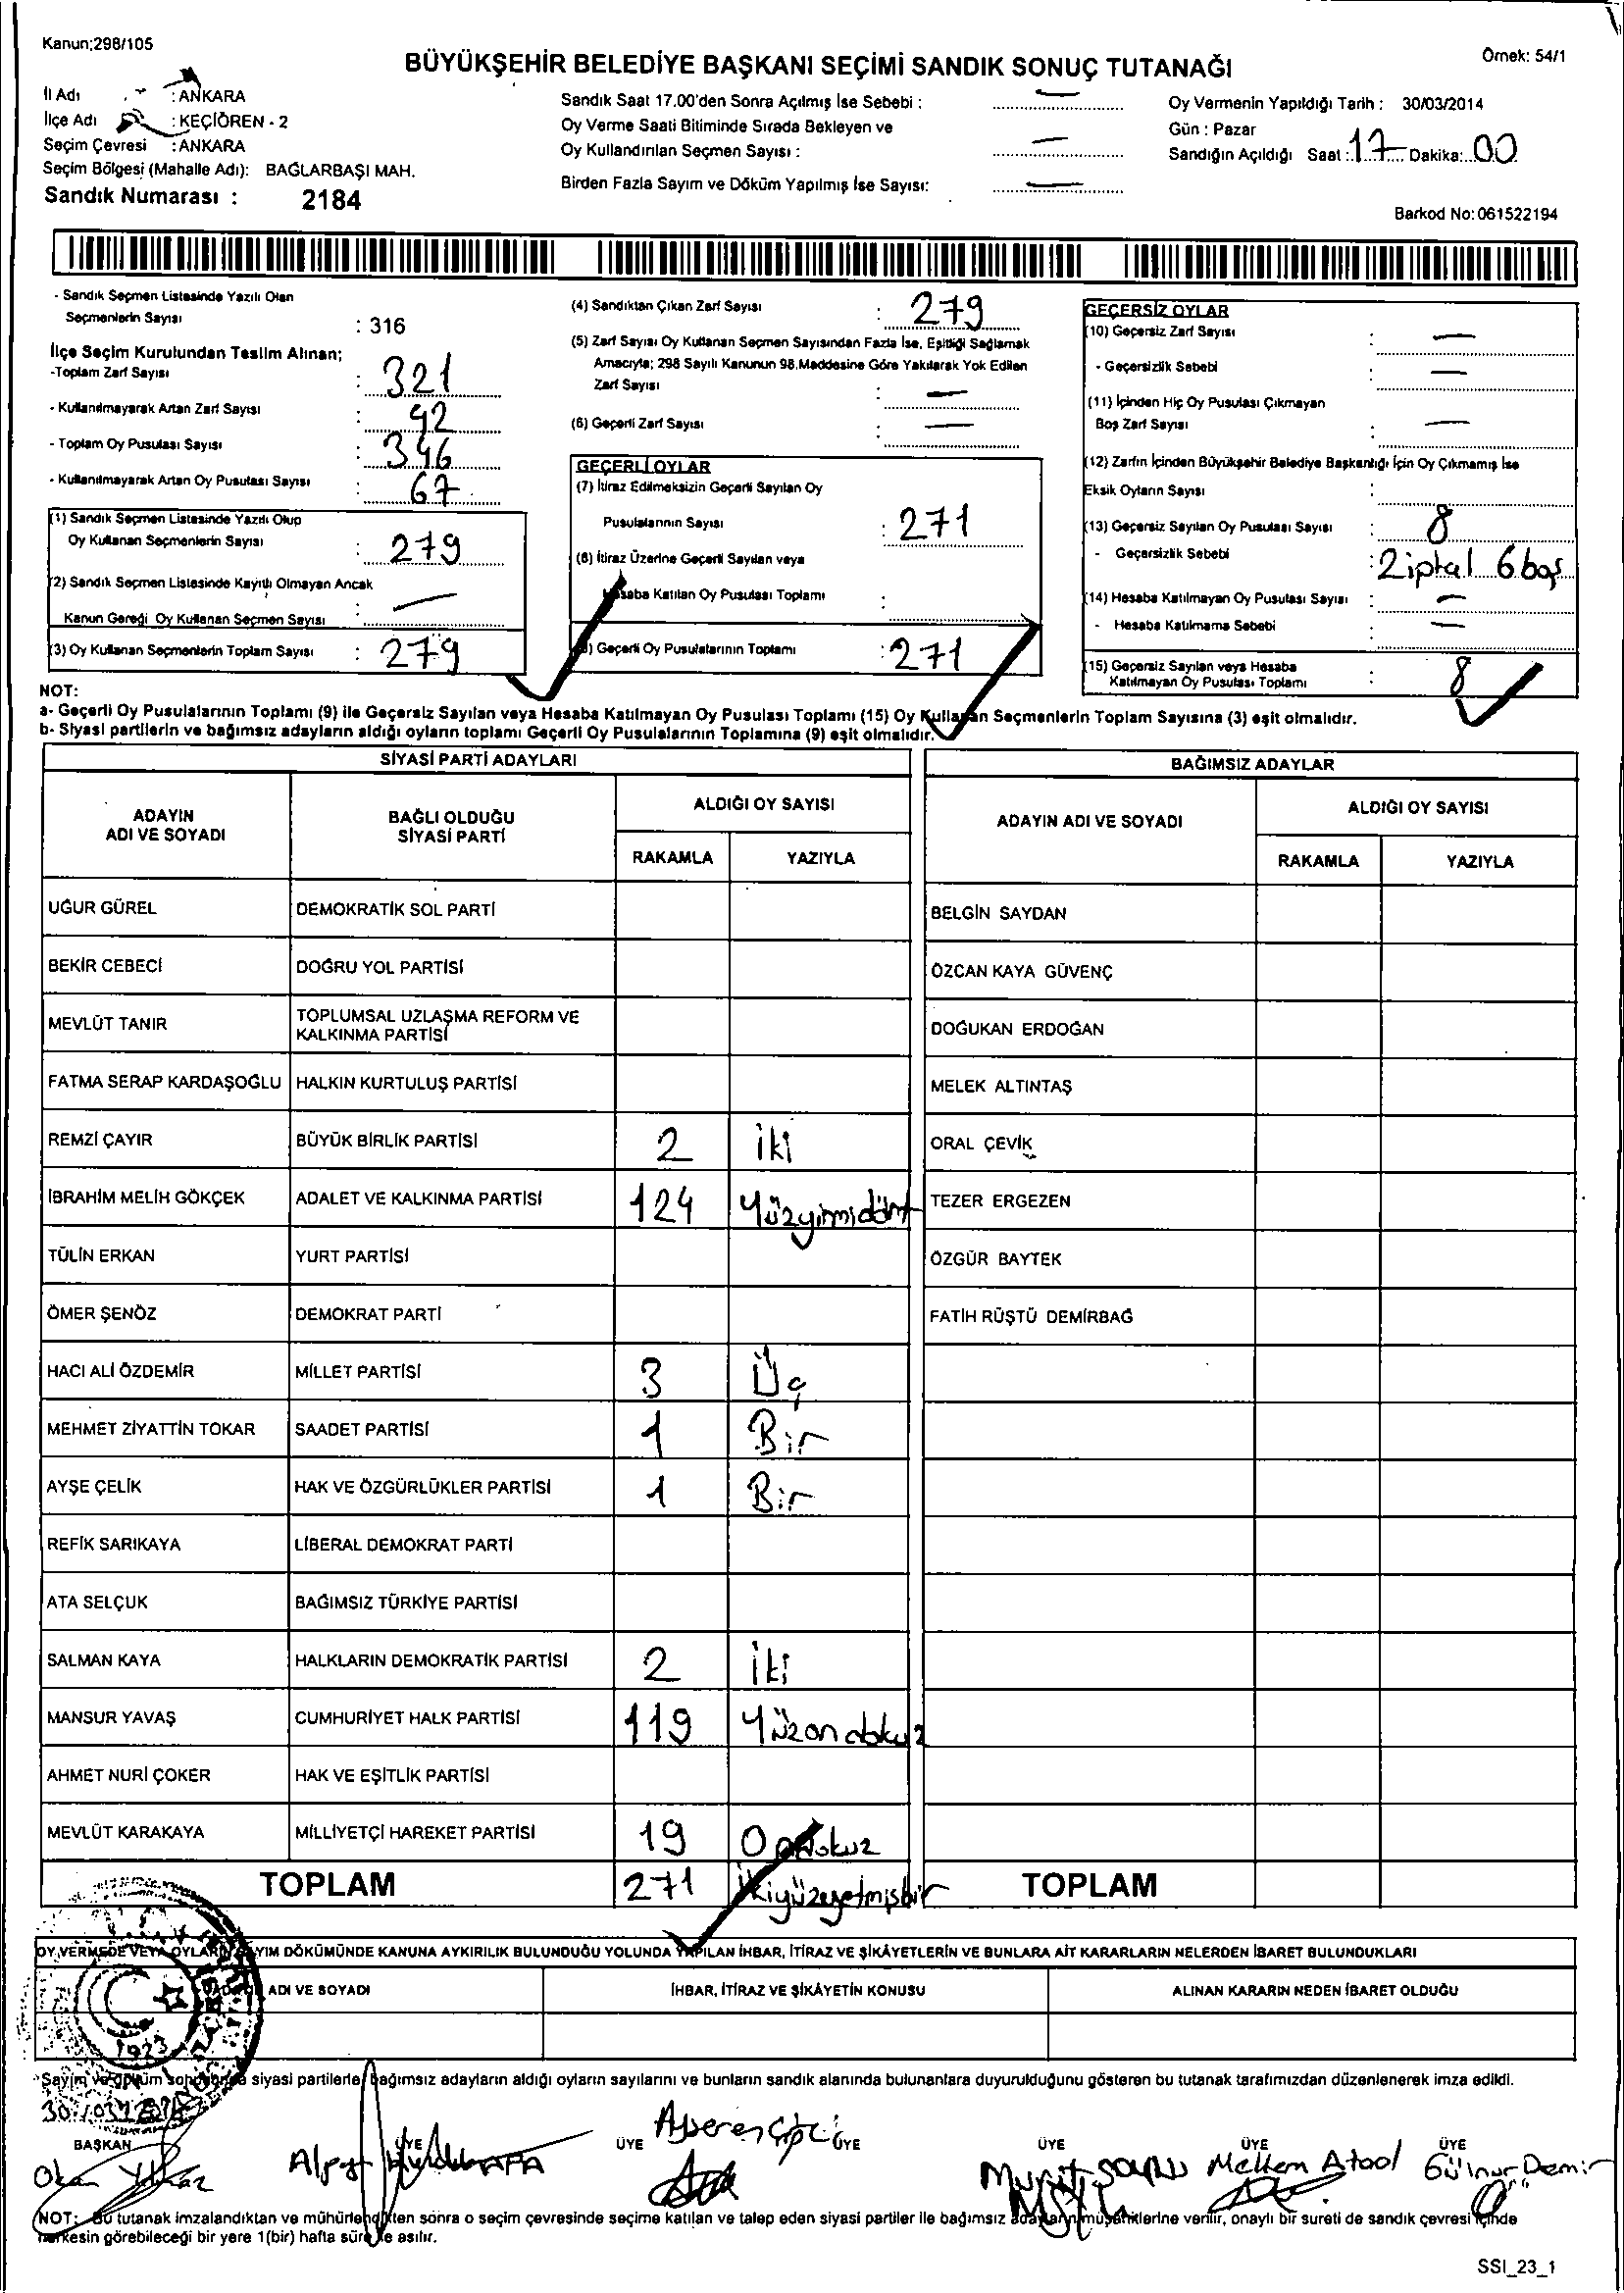 Kanun;298/105
BÜYÜKŞEHİR BELEDİYE BAŞKANI SEÇİMİ SANDIK SONUÇ TUTANAĞI
Örnek: 54/1
İl Adı : ANKARA
İlçe Adı : KEÇİÖREN - 2
Seçim Çevresi : ANKARA
Seçim Bölgesi (Mahalle Adı): BAĞLARBAŞI MAH.
Sandık Numarası : 2184
Sandık Saat 17.00'den Sonra Açılmış İse Sebebi : —
Oy Verme Saati Bitiminde Sırada Bekleyen ve
Oy Kullandırılan Seçmen Sayısı : —
Birden Fazla Sayım ve Döküm Yapılmış İse Sayısı: —
Oy Vermenin Yapıldığı Tarih : 30/03/2014
Gün : Pazar
Sandığın Açıldığı Saat : 17 Dakika: 00
Barkod No: 061522194
- Sandık Seçmen Listesinde Yazılı Olan
Seçmenlerin Sayısı : 316
İlçe Seçim Kurulundan Teslim Alınan;
-Toplam Zarf Sayısı : 321
- Kullanılmayarak Artan Zarf Sayısı : 42
- Toplam Oy Pusulası Sayısı : 346
- Kullanılmayarak Artan Oy Pusulası Sayısı : 67
(1) Sandık Seçmen Listesinde Yazılı Olup
Oy Kullanan Seçmenlerin Sayısı : 279
(2) Sandık Seçmen Listesinde Kayıtlı Olmayan Ancak
Kanun Gereği Oy Kullanan Seçmen Sayısı : —
(3) Oy Kullanan Seçmenlerin Toplam Sayısı : 279
(4) Sandıktan Çıkan Zarf Sayısı : 279
(5) Zarf Sayısı Oy Kullanan Seçmen Sayısından Fazla İse, Eşitliği Sağlamak
Amacıyla; 298 Sayılı Kanunun 98.Maddesine Göre Yakılarak Yok Edilen
Zarf Sayısı : —
(6) Geçerli Zarf Sayısı : —
GEÇERLİ OYLAR
(7) İtiraz Edilmeksizin Geçerli Sayılan Oy
Pusulalarının Sayısı : 271
(8) İtiraz Üzerine Geçerli Sayılan veya
Hesaba Katılan Oy Pusulası Toplamı :
(9) Geçerli Oy Pusulalarının Toplamı : 271
GEÇERSİZ OYLAR
(10) Geçersiz Zarf Sayısı : —
- Geçersizlik Sebebi : —
(11) İçinden Hiç Oy Pusulası Çıkmayan
Boş Zarf Sayısı : —
(12) Zarfın İçinden Büyükşehir Belediye Başkanlığı İçin Oy Çıkmamış İse
Eksik Oyların Sayısı :
(13) Geçersiz Sayılan Oy Pusulası Sayısı : 8
- Geçersizlik Sebebi : 2 iptal 6 boş
(14) Hesaba Katılmayan Oy Pusulası Sayısı : —
- Hesaba Katılmama Sebebi : —
(15) Geçersiz Sayılan veya Hesaba
Katılmayan Oy Pusulası Toplamı : 8
NOT:
a- Geçerli Oy Pusulalarının Toplamı (9) ile Geçersiz Sayılan veya Hesaba Katılmayan Oy Pusulası Toplamı (15) Oy Kullanan Seçmenlerin Toplam Sayısına (3) eşit olmalıdır.
b- Siyasi partilerin ve bağımsız adayların aldığı oyların toplamı Geçerli Oy Pusulalarının Toplamına (9) eşit olmalıdır.
SİYASİ PARTİ ADAYLARI
ADAYIN ADI VE SOYADI
BAĞLI OLDUĞU SİYASİ PARTİ
ALDIĞI OY SAYISI
RAKAMLA YAZIYLA
BAĞIMSIZ ADAYLAR
ADAYIN ADI VE SOYADI
ALDIĞI OY SAYISI
RAKAMLA YAZIYLA
UĞUR GÜREL DEMOKRATİK SOL PARTİ BELGİN SAYDAN
BEKİR CEBECİ DOĞRU YOL PARTİSİ ÖZCAN KAYA GÜVENÇ
MEVLÜT TANIR TOPLUMSAL UZLAŞMA REFORM VE KALKINMA PARTİSİ DOĞUKAN ERDOĞAN
FATMA SERAP KARDAŞOĞLU HALKIN KURTULUŞ PARTİSİ MELEK ALTINTAŞ
REMZİ ÇAYIR BÜYÜK BİRLİK PARTİSİ 2 iki ORAL ÇEVİK
İBRAHİM MELİH GÖKÇEK ADALET VE KALKINMA PARTİSİ 124 Yüzyirmidört TEZER ERGEZEN
TÜLİN ERKAN YURT PARTİSİ ÖZGÜR BAYTEK
ÖMER ŞENÖZ DEMOKRAT PARTİ FATİH RÜŞTÜ DEMİRBAĞ
HACI ALİ ÖZDEMİR MİLLET PARTİSİ 3 Üç
MEHMET ZİYATTİN TOKAR SAADET PARTİSİ 1 Bir
AYŞE ÇELİK HAK VE ÖZGÜRLÜKLER PARTİSİ 1 Bir
REFİK SARIKAYA LİBERAL DEMOKRAT PARTİ
ATA SELÇUK BAĞIMSIZ TÜRKİYE PARTİSİ
SALMAN KAYA HALKLARIN DEMOKRATİK PARTİSİ 2 İki
MANSUR YAVAŞ CUMHURİYET HALK PARTİSİ 119 Yüzondokuz
AHMET NURİ ÇOKER HAK VE EŞİTLİK PARTİSİ
MEVLÜT KARAKAYA MİLLİYETÇİ HAREKET PARTİSİ 19 Ondokuz
TOPLAM 271 İkiyüzyetmişbir TOPLAM
OY VERMEDE VEYA OYLARIN SAYIM DÖKÜMÜNDE KANUNA AYKIRILIK BULUNDUĞU YOLUNDA YAPILAN İHBAR, İTİRAZ VE ŞİKÂYETLERİN VE BUNLARA AİT KARARLARIN NELERDEN İBARET BULUNDUKLARI
ADI VE SOYADI İHBAR, İTİRAZ VE ŞİKÂYETİN KONUSU ALINAN KARARIN NEDEN İBARET OLDUĞU
1923
Sayım ve döküm sonucunda siyasi partilerle bağımsız adayların aldığı oyların sayılarını ve bunların sandık alanında bulunanlara duyurulduğunu gösteren bu tutanak tarafımızdan düzenlenerek imza edildi.
BAŞKAN ÜYE ÜYE ÜYE ÜYE ÜYE ÜYE
Okan Yılmaz Meltem Atool Gülnur Demir
NOT: Bu tutanak imzalandıktan ve mühürlendikten sonra o seçim çevresinde seçime katılan ve talep eden siyasi partiler ile bağımsız adayların müşahitlerine verilir, onaylı bir sureti de sandık çevresi içinde
herkesin görebileceği bir yere 1(bir) hafta süre ile asılır.
SSI_23_1